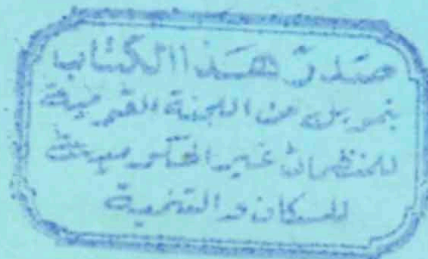 صدر هذا الكتاب
بتمويل من اللجنة القومية
للمنظمات غير الحكومية
للسكان والتنمية